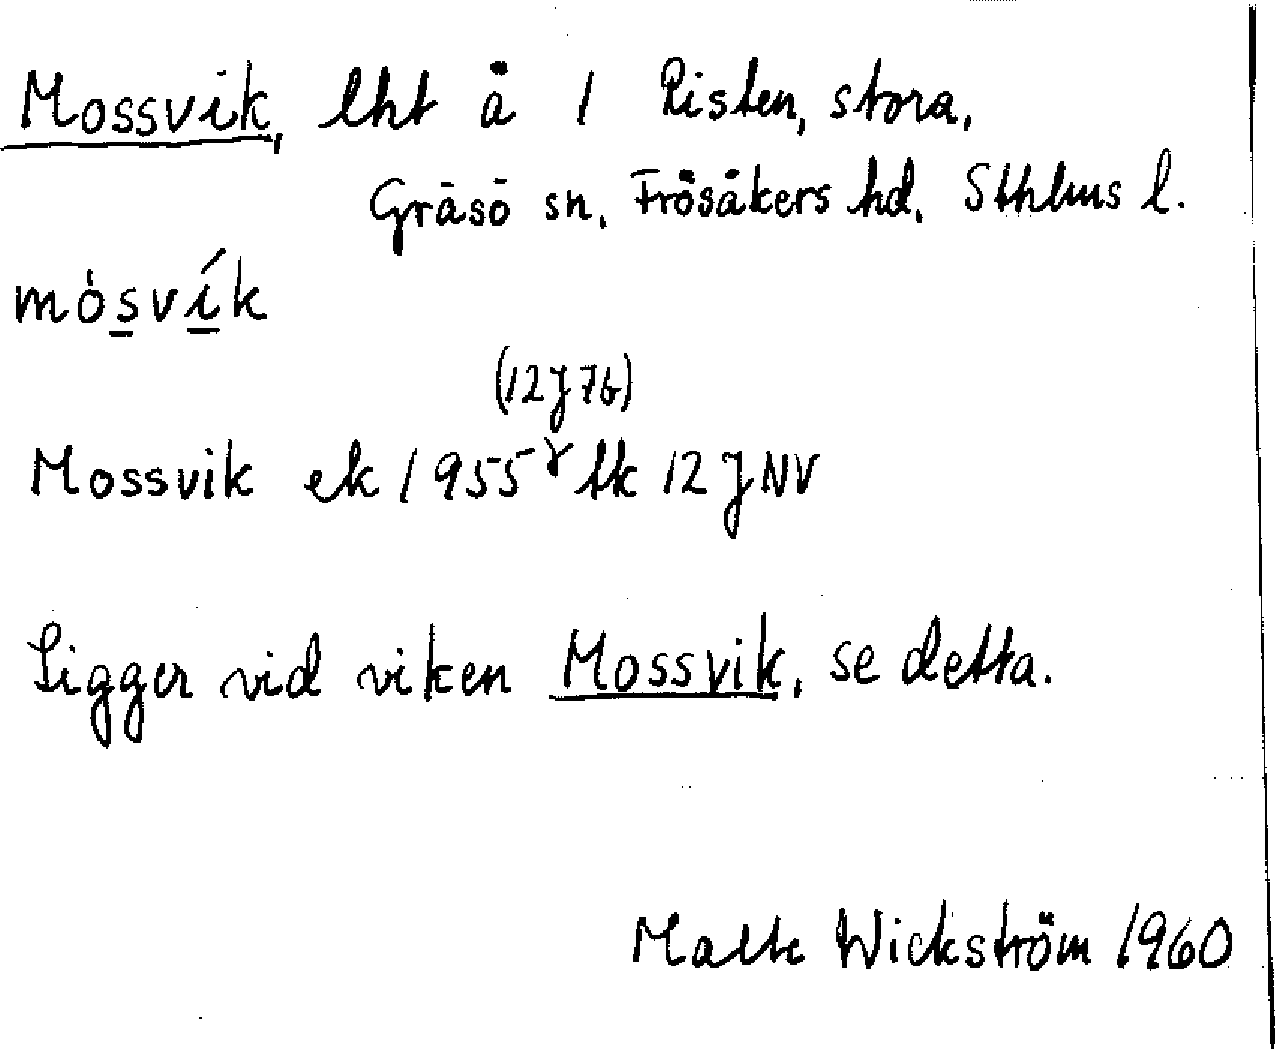 Mossvik, lht å 1 Risten, stora,
Gräsö sn, Frösåkers hd, Sthlms l.
mósvík
(12J7b)
Mossvik ek 1955 tk 12JNV
Ligger vid viken Mossvik, se detta.
Malte Wickström 1960